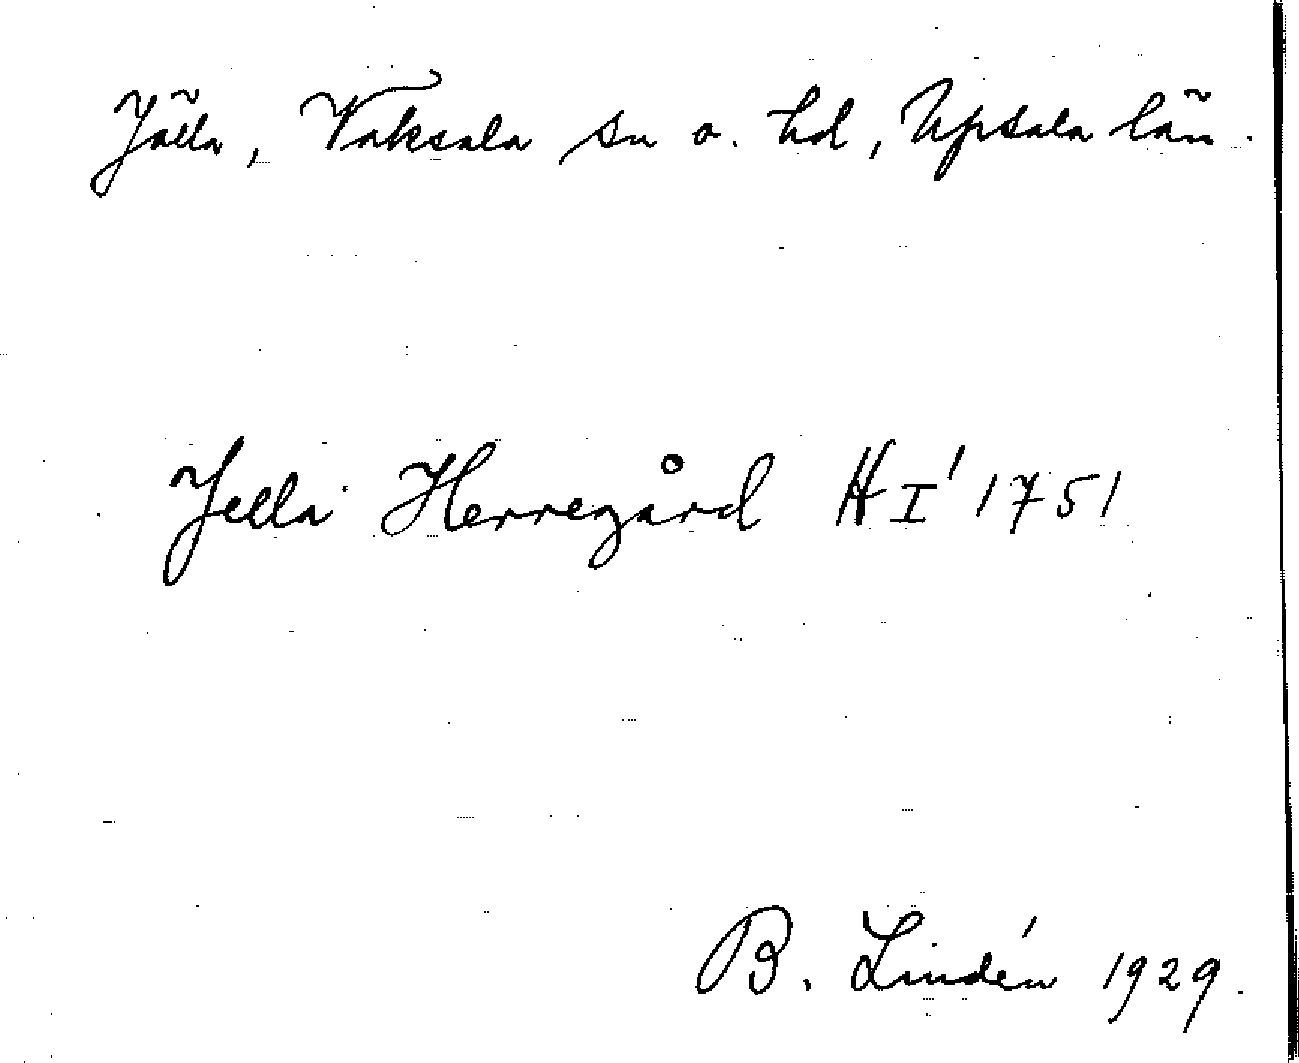 Jälla, Vaksala sn o. hd, Upsala län.
Jella Herregård HI' 1751
B. Lindén 1929.